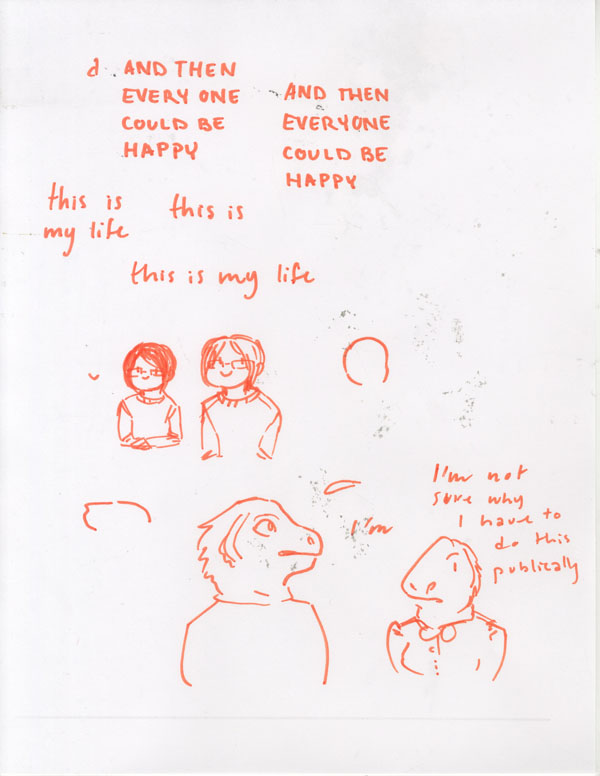 d AND THEN
EVERY ONE
COULD BE
HAPPY
AND THEN
EVERYONE
COULD BE
HAPPY
this is
my life
this is
this is my life
I'm not
sure why
I have to
do this
publically
I'm